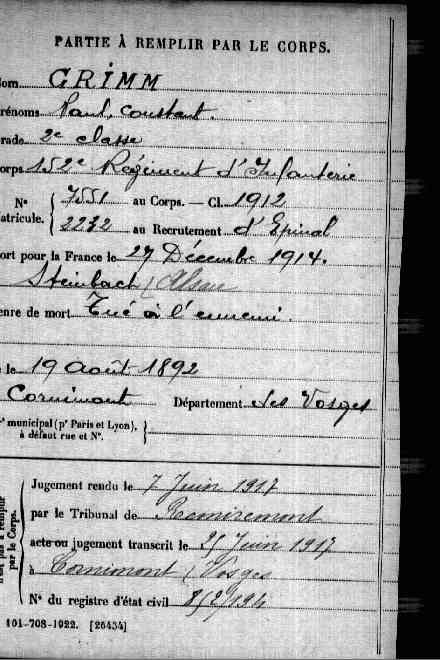 PARTIE À REMPLIR PAR LE CORPS.
om GRIMM
rénoms Paul, Constant.
rade 2e classe
orps 152e Régiment d'Infanterie
N° 7551 au Corps. — Cl. 1912
atricule. 2232 au Recrutement d'Epinal
ort pour la France le 27 Décembre 1914.
Steinbach (Alsace
enre de mort Tué à l'ennemi.
le 19 Août 1892
Cornimont Département des Vosges
municipal (pr Paris et Lyon),
à défaut rue et N°.
par le Corps.
Jugement rendu le 7 Juin 1917
par le Tribunal de Remiremont
acte ou jugement transcrit le 25 Juin 1917
à Cornimont (Vosges
N° du registre d'état civil
101-708-1922. [26434]